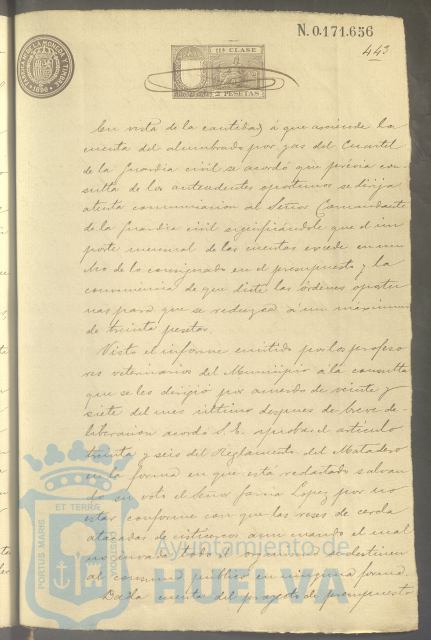 N. 0.171.656
442
FABRICA N. DE LA MONEDA Y TIMBRE
1896
11ª CLASE
2 PESETAS
En vista de la cantidad á que asciende la
cuenta del alumbrado por gas del Cuartel
de la Guardia civil se acordó que prévia con-
sulta de los antecedentes oportunos se dirija
atenta comunicacion al Señor Comandante
de la Guardia civil significándole que el im
porte mensual de las cuentas excede en mu
cho de lo consignado en el presupuesto y la
conveniencia de que dicte las órdenes oportu
nas para que se reduzca á un máximum
de treinta pesetas.
Visto el informe emitido por los profeso
res veterinarios del Municipio a la consulta
que se les dirigió por acuerdo de veinte y
siete del mes último despues de breve de-
liberacion acordó S. E. aprobar el artículo
treinta y seis del Reglamento del Matadero
en la forma en que está redactado salvan
do su voto el Señor García Lopez por no
estar conforme con que las reses de cerda
atacadas de cisticercos aun cuando el mal
no invada todo el se destinen
al consumo público en ninguna forma.
Dada cuenta del proyecto de presupuesto
PORTUS MARIS ET TERRAE CUSTODIA
Ayuntamiento de
HUELVA